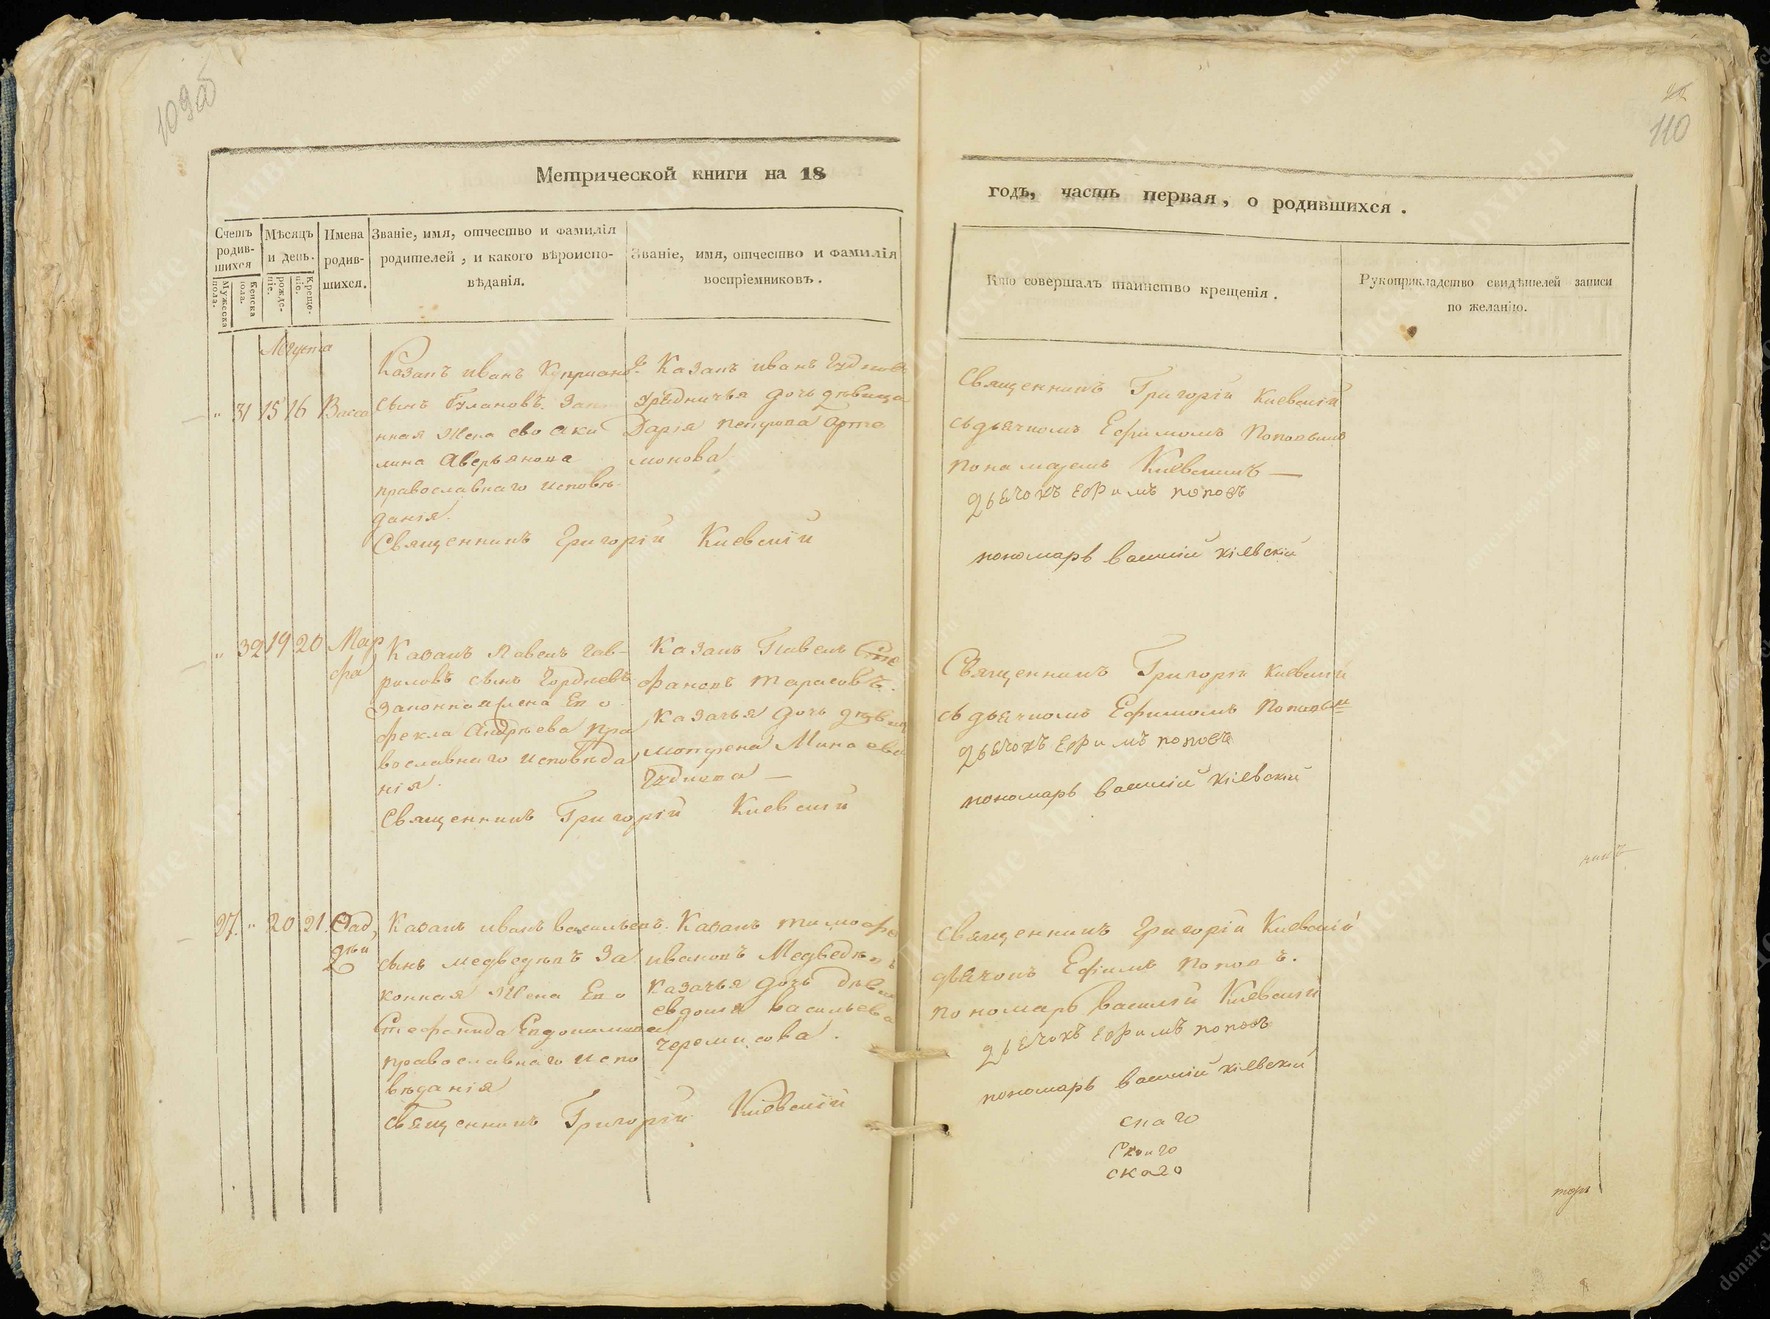 109об
22
110
Метрической книги на 18
годъ, часть первая, о родившихся.
Счетъ родив-шихся
Мужеска пола.
Женска пола.
Мѣсяцъ и день.
рожде-ніе.
Креще-ніе.
Имена родив-шихся.
Званіе, имя, отчество и фамилія
родителей, и какого вѣроиспо-
вѣданія.
Званіе, имя, отчество и фамилія
воспріемниковъ.
Кто совершалъ таинство крещенія.
Рукоприкладство свидѣтелей записи
по желанію.
Августа
„ 31 15 16 Васса
Казакъ иванъ Куприяно
сынъ Гулановъ. Зако
нная Жена ево Аки
лина Аверьянова
православнаго исповѣ-
данія.
Священникъ Григорій Киевскій
Казакъ иванъ
дочь дѣвица
Дарія
монова
Священникъ Григорій Киевскій
съ дьячкомъ Ефимомъ Поповымъ
пономаремъ Киевскимъ —
дьячокъ Ефимъ поповъ
пономарь василій кіевскій
„ 32 19 20 Мар
фа
Казакъ Павелъ Гав-
риловъ сынъ Гордѣевъ
Законная жена Ево
фекла Андрѣева пра
вославнаго исповѣда
нія.
Священникъ Григорій Киевскій
Казакъ Павелъ Сте
фановъ тарасовъ.
Казачья дочь дѣвица
матрена Минаева
Священникъ Григорій Киевскій
съ дьячкомъ Ефимомъ Поповым
дьячокъ Ефимъ поповъ
пономарь василій кіевскій
27. „ 20 21 Фад
дѣй
Казакъ иванъ васильевъ
сынъ медведѣвъ За
конная Жена Ево
Стефанида Евдокимова
православнаго испо
вѣданія
Священникъ Григорій Киевскій
Казакъ тимофей
ивановъ Медведѣвъ
Казачья дочь дѣвица
евдокія васильева
черемисова.
Священникъ Григорій Киевскій
дьячокъ Ефимъ поповъ.
пономарь василій Киевскій
дьячокъ Ефимъ поповъ
пономарь василій кіевскій
скаго
скаго
скаго